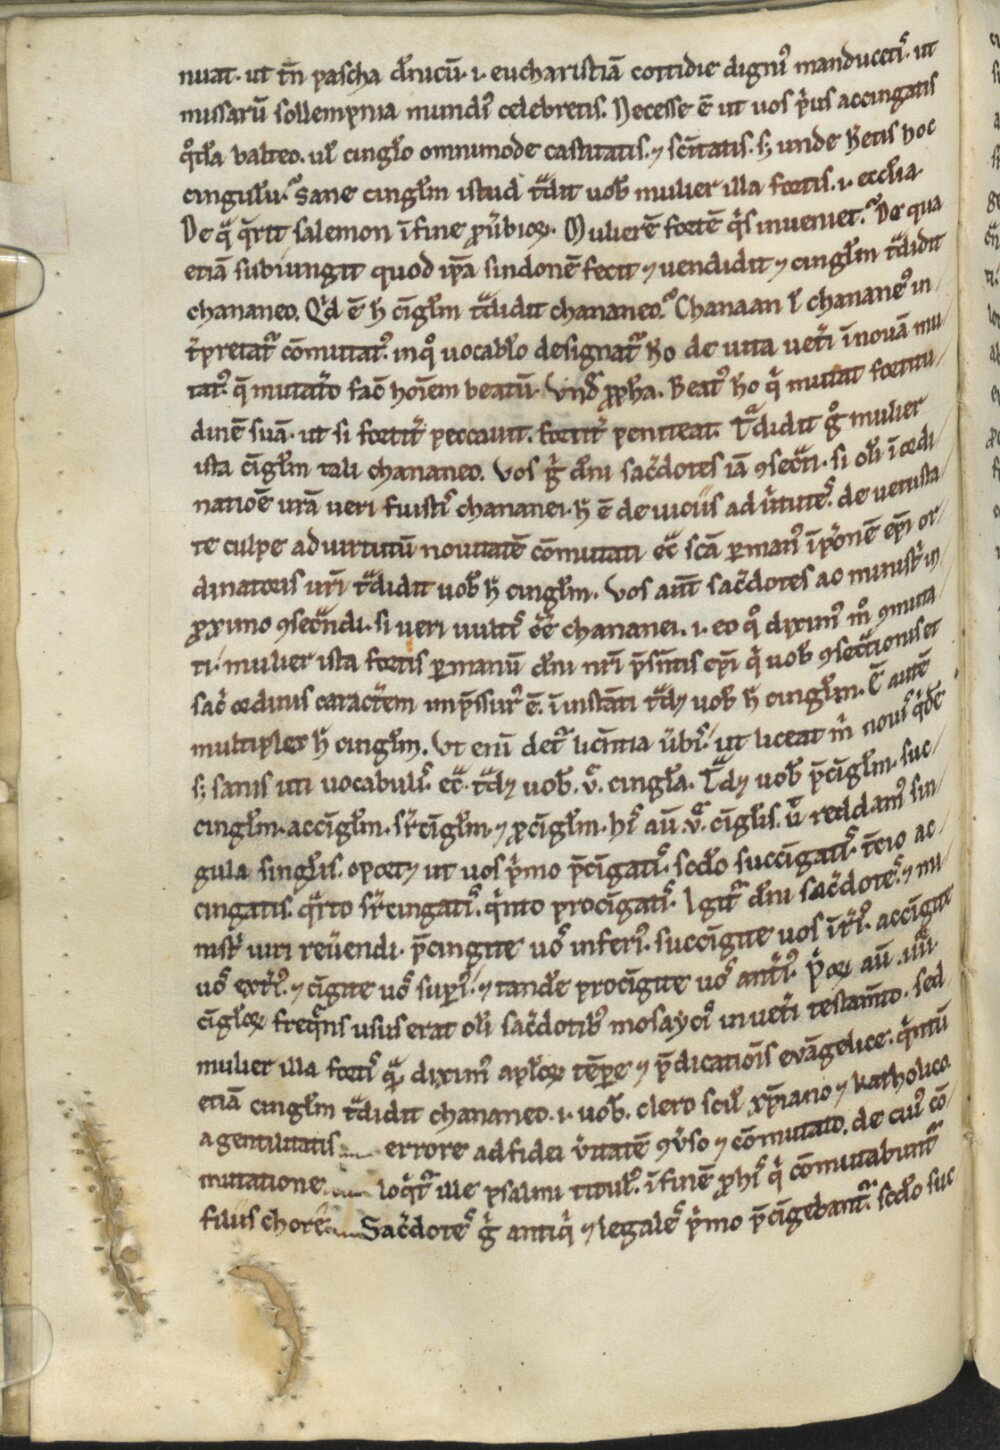 nuat. ut tn̄ pascha dn̄icū. i. eucharistiā cottidie digni᷒ manducetis. ut
missarū sollempnia mundi᷒ celebretis. Necesse ē ut uos p̄us accingatis
q̊da balteo. ul̄ cinglo omnimode castitatis. ⁊ sc̄itatis. s; unde h̄etis hoc
cingulū. Sane cingl̄m istud t̄dit uob̄ mulier illa fortis. i. ecclīa.
De q̄ q̄rit salemon ī fine pu̅bioꝝ. Mulierē fortē q̇s inueniet. De qua
etiā subiungit quod ip̄a sindonē fecit ⁊ uendidit ⁊ cingl̄m t̄didit
chananeo. Qd̓ ē h̄ cīgl̄m t̄didit chananeo. Chanaan ł chanane᷒ in
t̓pretat᷑ cōmutat᷒. in q̊ uocablo designat᷑ ho de uita uet̓i ī nouā mu
tat᷒. q̄ mutatio fac̄ hoīem beatū. Vnd̄ ꝓph̄a. Beat᷒ ho q̇ mutat fortitu
dinē suā. ut si fortit̓ peccauit. fortit̓ peniteat. T̄didit ḡ mulier
ista cīgl̄m tali chananeo. Vos ḡ dn̄i sac̓dotes iā ꝯsecrati. si oli ī cordi
natiōe ur̄ā ueri fuistis chananei. h̄ ē de uiciis ad u̓tutes. de uetusta
te culpe ad uirtutū nouitatē cōmutati ecc̄ sc̄ā ꝑ man᷒ ī p̓sonē ep̄i or
dinatoris ur̄i t̄didit uob̄ h̄ cingl̄m. Vos aut̄ sac̓dotes ac ministri in
ꝓximo ꝯsecrandi. si ueri uultis ēē chananei. i. eo q̊ dixim᷒ m̊ ꝯmuta
ti. mulier ista fortis ꝑ manū dn̄i nr̄i p̄sentis ep̄i q̇ uob̄ ꝯsecrationis et
sac̓ ordinis caract̓em imp̄ssur᷒ ē. ī instāti t̄dꝫ uob̄ h̄ cingl̄m. Ē autē
multiplex h̄ cingl̄m. Vt enī det᷑ licentia u̓bis. ut liceat m̓ nouis q̇dē
s; sanis uti uocabulis. ecc̄ t̄dꝫ uob̄. v. cingla. T̄dꝫ uob̄ p̄cīgl̄m. suc
cingl̄m. accīgl̄m. sr̄cīgl̄m ⁊ ꝓcīgl̄m. his au̅ .v. cīglis. ū reddam᷒ sin
gula singl̄is. oportꝫ ut uos p̓mo p̄cīgatis. scd̄o succīgatis. t̓cio ac
cingatis. q̄rto sr̄cingatis. q̇nto procīgatis. Igit᷑ dn̄i sac̓dotes ⁊ mi
nistri uiri reuerendi. p̄cingite uos inferi᷒. succīgite uos īt̓i᷒. accīgite
uos ext̓i᷒. ⁊ cīgite uos sup̓i᷒. ⁊ tandē procīgite uos ant̓i᷒. P̓oꝝ au̅ .iiii.
cīgl̄oꝝ freq̄ns usus erat oli sac̓dotib᷒ mosayci᷒ in uet̓i testam̄to. sed
mulier illa fortis q̄ dixim᷒ apl̄oꝝ tēpore ⁊ p̄dicatiōis evāgelice. q̇ntū
etiā cingl̄m t̄didit chananeo. i. uob̄. clero scil̄ xp̄iano ⁊ katholico.
a gentilitatis errore ad fidei u̓itatē ꝯu̓so ⁊ cōmutato. de cui᷒ cō
mutatione loq̇t᷑ ille psalmi titul᷒. ī finē ꝓ his q̇ cōmutabunt᷑
filiis chore. Sac̓dotes ḡ antiq̇ ⁊ legales p̓mo p̄cīgebant᷑. scd̄o suc